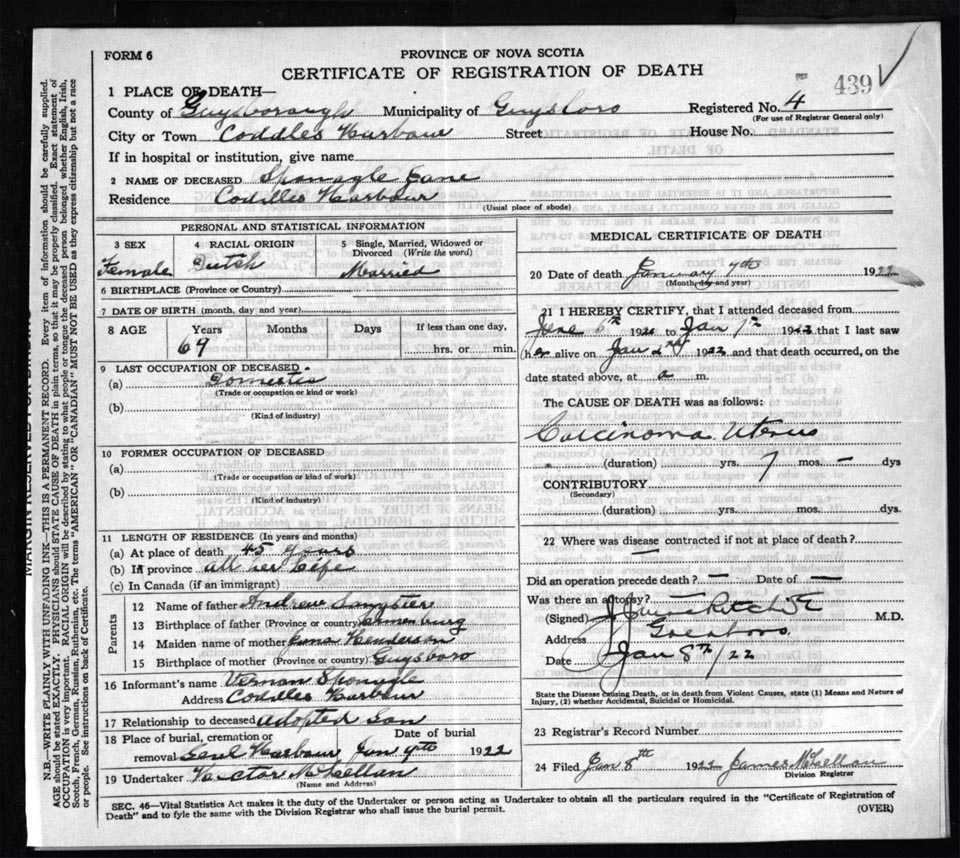 FORM 6
PROVINCE OF NOVA SCOTIA
CERTIFICATE OF REGISTRATION OF DEATH
439
1 PLACE OF DEATH—
County of Guysborough Municipality of Guysboro Registered No. 4
(For use of Registrar General only)
City or Town Coddles Harbour Street House No.
If in hospital or institution, give name
2 NAME OF DECEASED Sponagle Jane
Residence Coddles Harbour
(Usual place of abode)
PERSONAL AND STATISTICAL INFORMATION
3 SEX 4 RACIAL ORIGIN 5 Single, Married, Widowed or Divorced (Write the word)
Female Dutch Married
6 BIRTHPLACE (Province or Country)
7 DATE OF BIRTH (month, day and year)
8 AGE Years Months Days If less than one day,
69 hrs. or min.
9 LAST OCCUPATION OF DECEASED
(a) Domestic
(Trade or occupation or kind or work)
(b)
(Kind of industry)
10 FORMER OCCUPATION OF DECEASED
(a)
(Trade or occupation or kind of work)
(b)
(Kind of industry)
11 LENGTH OF RESIDENCE (In years and months)
(a) At place of death 45 years
(b) In province all her Life
(c) In Canada (if an immigrant)
Parents
12 Name of father Andrew Sangster
13 Birthplace of father (Province or country)
14 Maiden name of mother Henderson
15 Birthplace of mother (Province or country) Guysboro
16 Informant's name Vernan Sponagle
Address Coddles Harbour
17 Relationship to deceased adopted Son
18 Place of burial, cremation or removal Date of burial
Harbour Jan 9th 1922
19 Undertaker Victor McLellan
(Name and Address)
MEDICAL CERTIFICATE OF DEATH
20 Date of death January 7th 1922
(Month, day and year)
21 I HEREBY CERTIFY, that I attended deceased from
June 6th 1921 to Jan 7th 1922 that I last saw
her alive on Jan 2nd 1922 and that death occurred, on the
date stated above, at a m.
The CAUSE OF DEATH was as follows:
Carcinoma Uterus
(duration) yrs. 7 mos. — dys
CONTRIBUTORY
(Secondary)
(duration) yrs. mos. dys.
22 Where was disease contracted if not at place of death?
—
Did an operation precede death? — Date of —
Was there an autopsy?
(Signed) M.D.
Address
Date Jan 8th/22
State the Disease causing Death, or in death from Violent Causes, state (1) Means and Nature of
Injury, (2) whether Accidental, Suicidal or Homicidal.
23 Registrar's Record Number
24 Filed Jan 8th 1922 James McLellan
Division Registrar
SEC. 46—Vital Statistics Act makes it the duty of the Undertaker or person acting as Undertaker to obtain all the particulars required in the "Certificate of Registration of
Death" and to fyle the same with the Division Registrar who shall issue the burial permit.
(OVER)
MARGIN RESERVED FOR
N.B.—WRITE PLAINLY WITH UNFADING INK—THIS IS A PERMANENT RECORD. Every item of information should be carefully supplied.
AGE should be stated EXACTLY. PHYSICIANS should STATE CAUSE OF DEATH in plain terms, so that it may be properly classified. Exact statement of
OCCUPATION is very important. RACIAL ORIGIN will be described by stating to what people or tongue the deceased person belonged whether English, Irish,
Scotch, French, German, Russian, Ruthenian, etc. The terms "AMERICAN" OR "CANADIAN" MUST NOT BE USED as they express citizenship but not a race
or people. See instructions on back of Certificate.